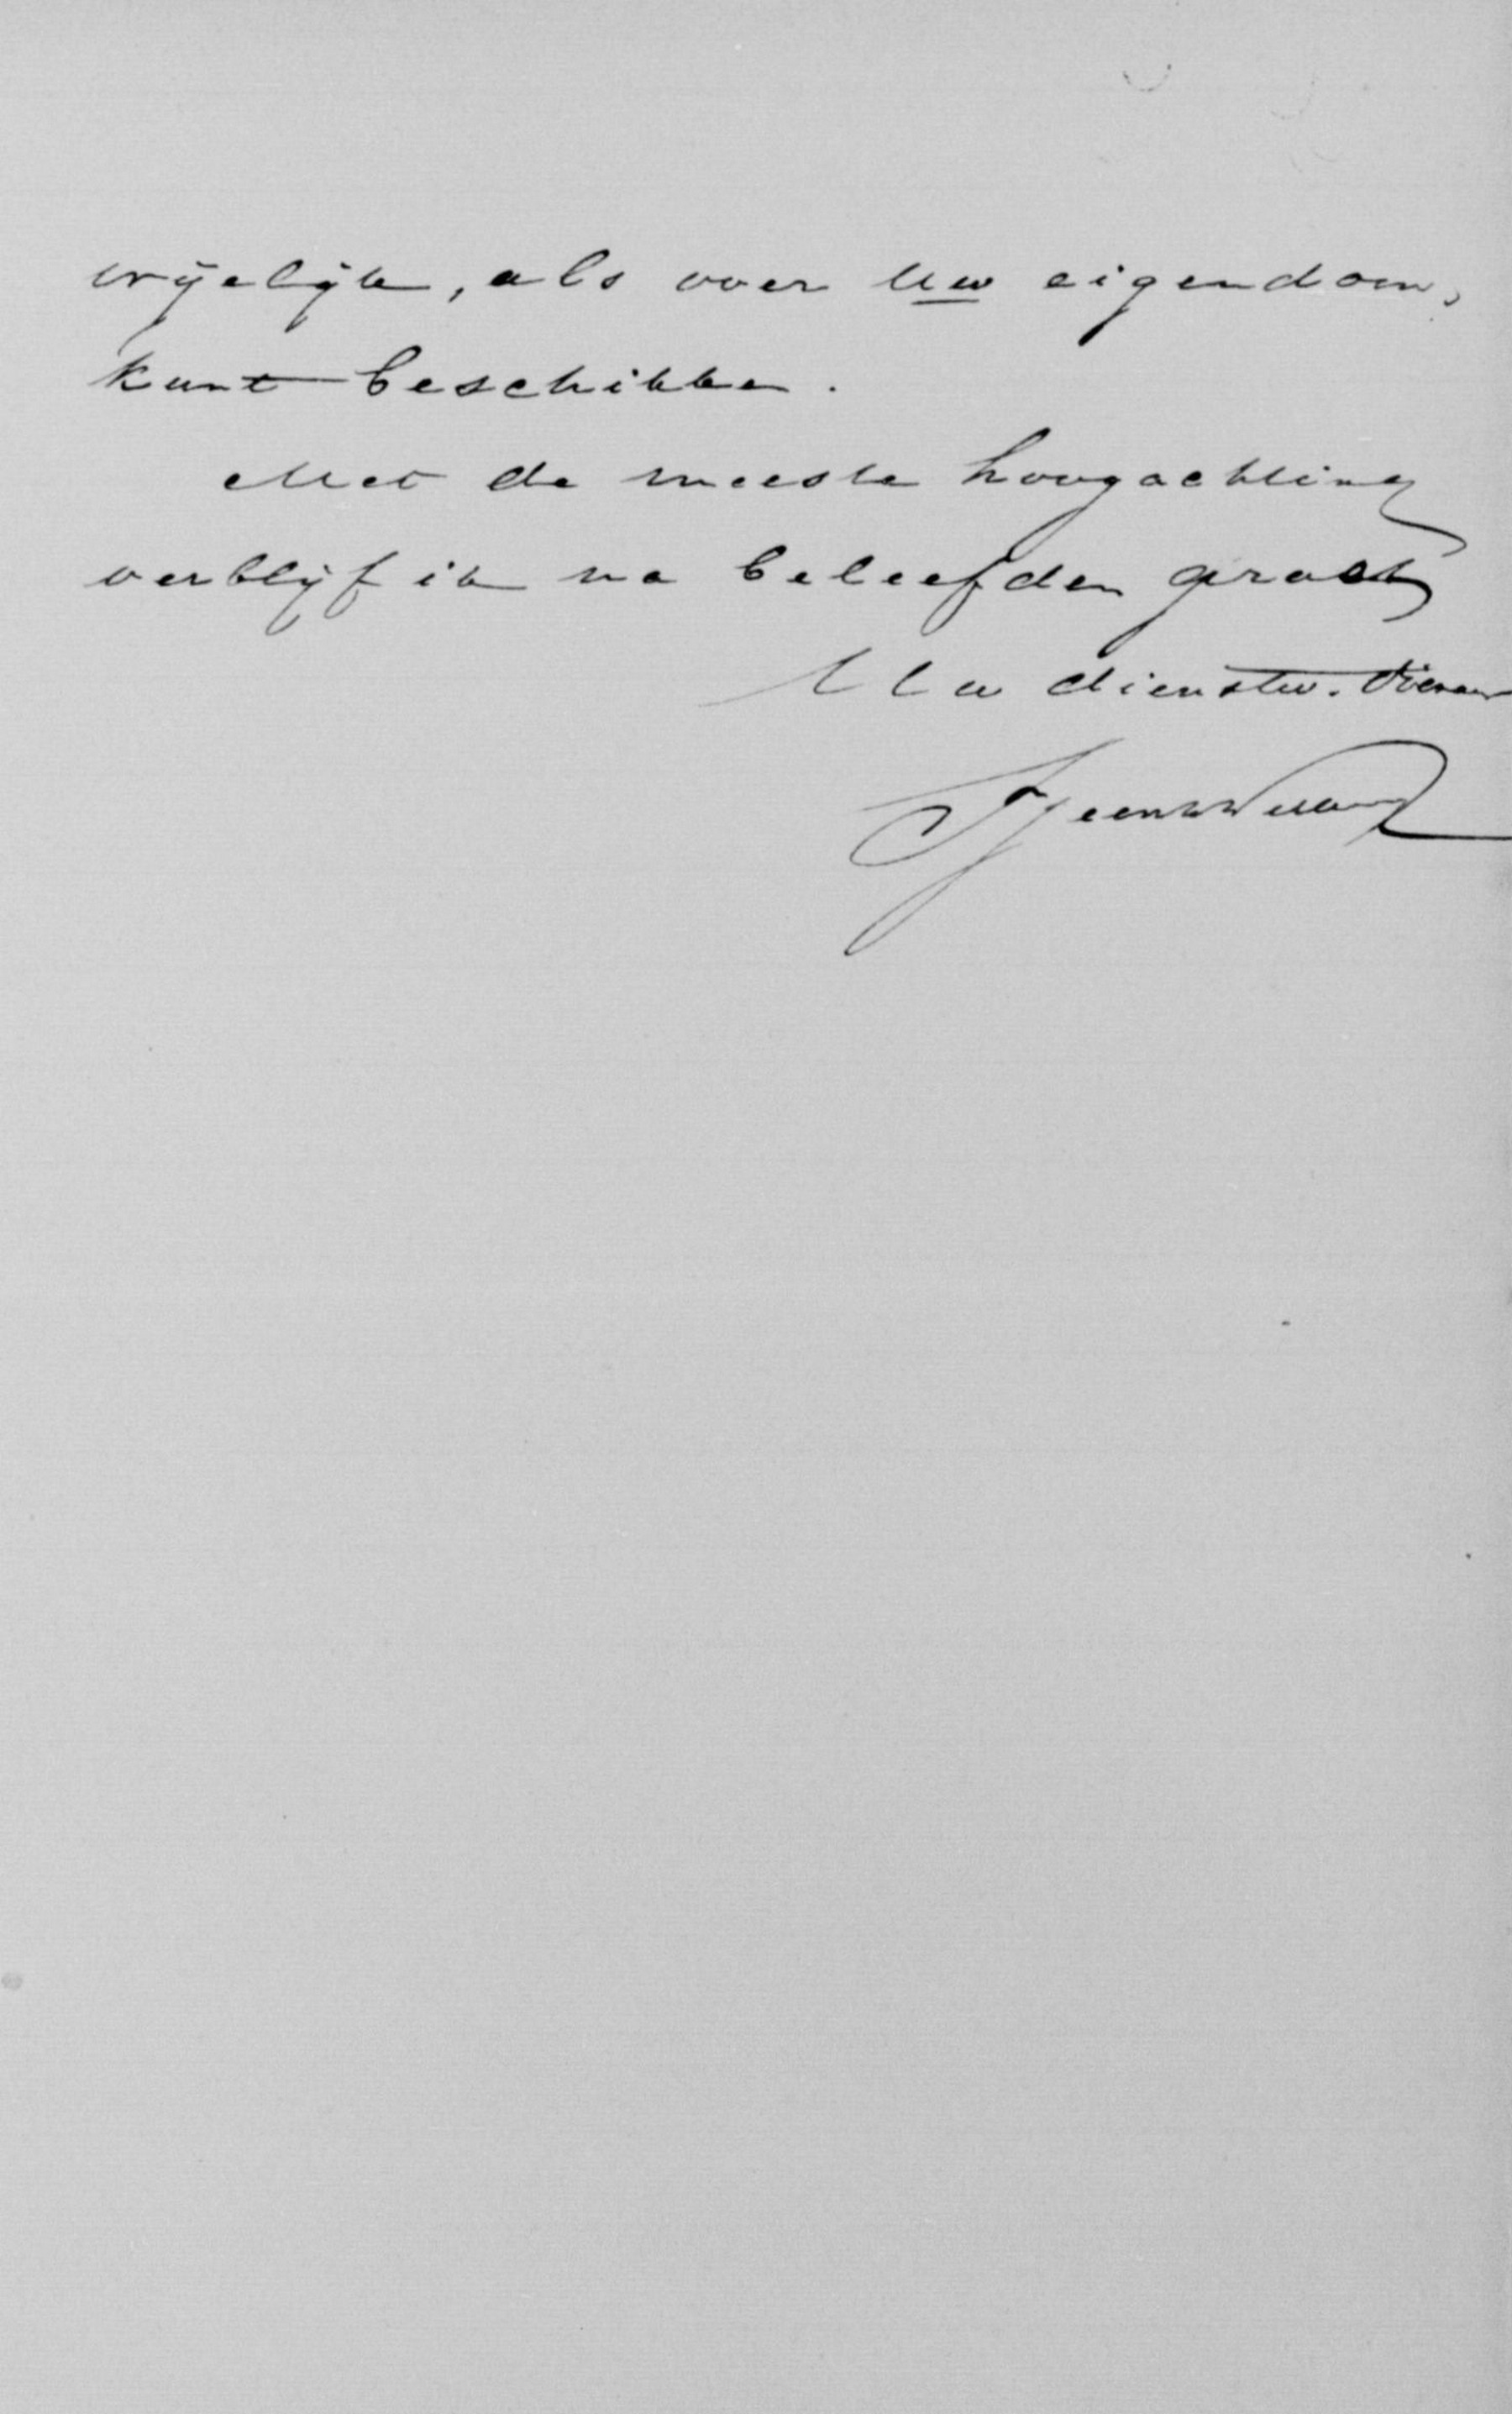 vrijelijk, als over Uw eigendom,
kunt beschikken.
Met de meeste hoogachting
verblijf ik na beleefden groet
Uw dienstw. dienaar
Tjeenk Willink